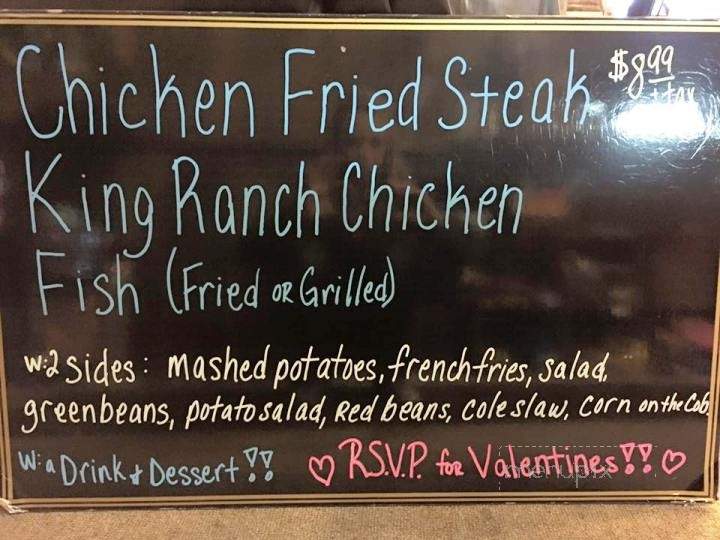 Chicken Fried Steak $8.99
+ tax
King Ranch Chicken
Fish (Fried OR Grilled)
W:2 Sides: mashed potatoes, french fries, salad,
green beans, potato salad, Red beans, Cole slaw, Corn on the Cob
W: a Drink & Dessert!! ♡ R.S.V.P. FOR Valentines!! ♡
menupix